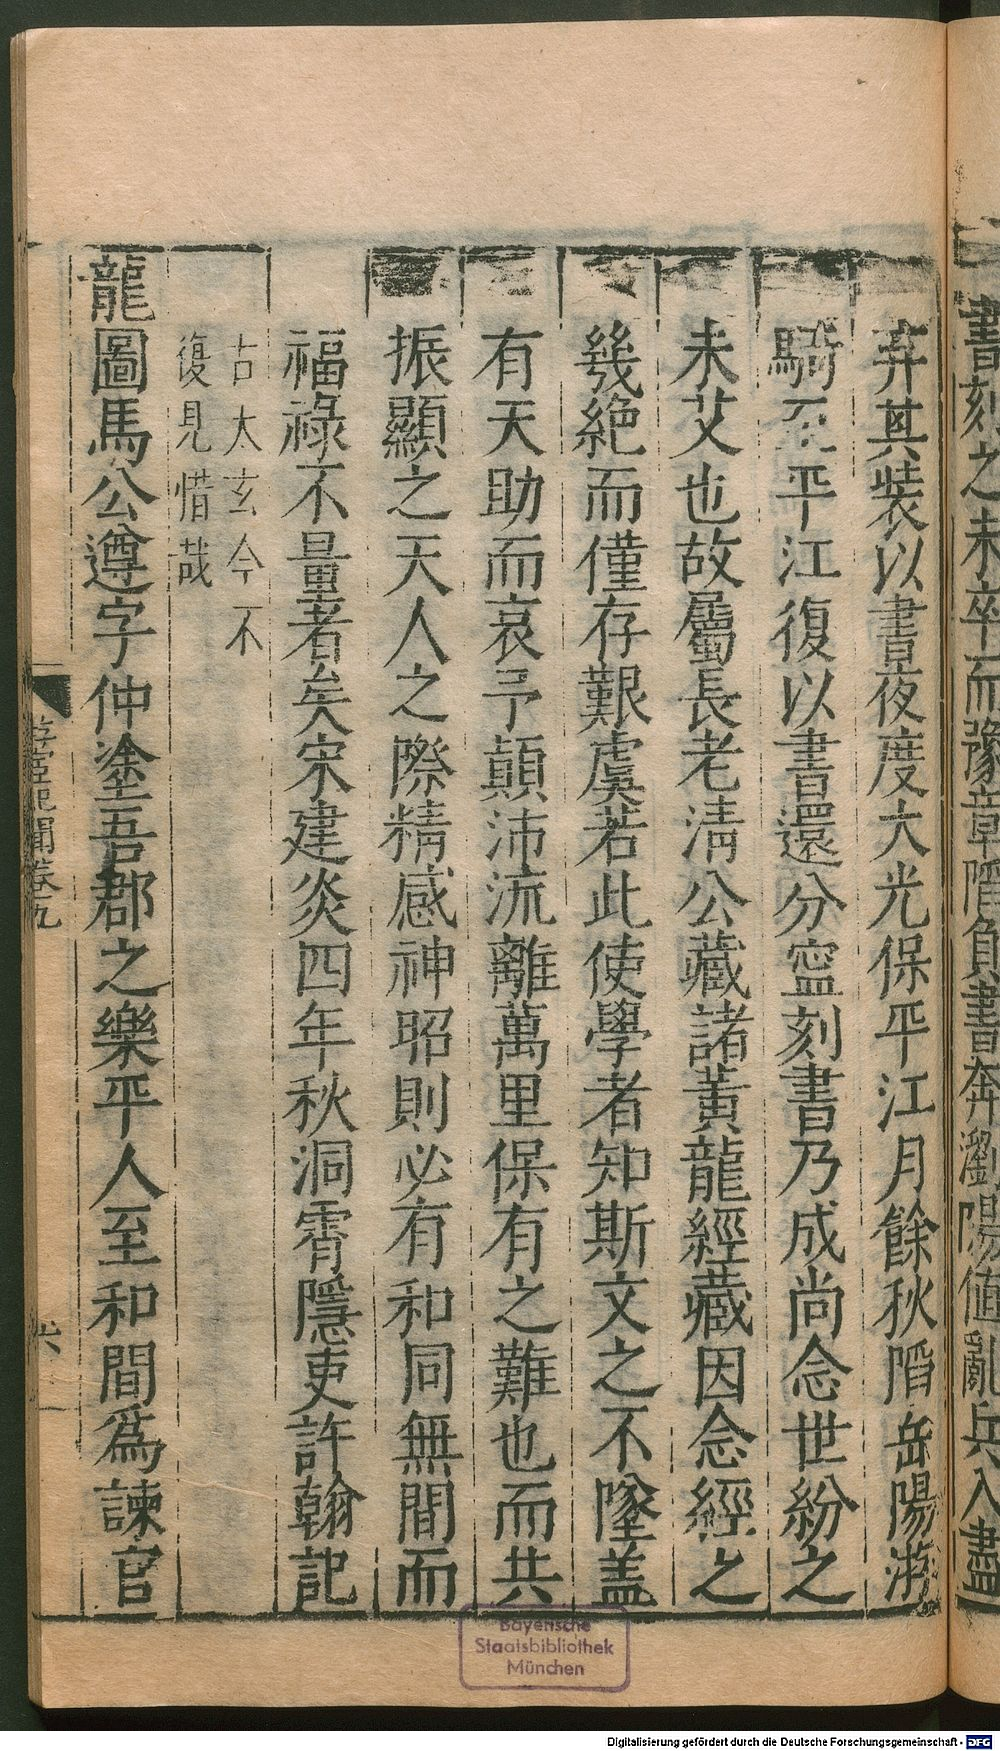 書刻之未卒而豫章㨽負書奔瀏陽値亂兵入盡
弃其裝以晝夜度大光保平江月餘秋㨽岳陽游
騎至平江復以書還分寍刻書乃成尚念世紛之
未艾也故屬長老淸公藏諸黃龍經藏因念經之
幾絶而僅存艱虞若此使學者知斯文之不墜盖
有天助而哀予顚沛流離萬里保有之難也而共
振顯之天人之際精感神昭則必有和同無間而
福祿不量者矣宋建炎四年秋洞霄隱吏許翰記
古太玄今不
復見惜哉
龍圖馬公遵字仲塗吾郡之樂平人至和間爲諫官
游宦紀聞卷九
六
Bayerische
Staatsbibliothek
München
Digitalisierung gefördert durch die Deutsche Forschungsgemeinschaft - DFG